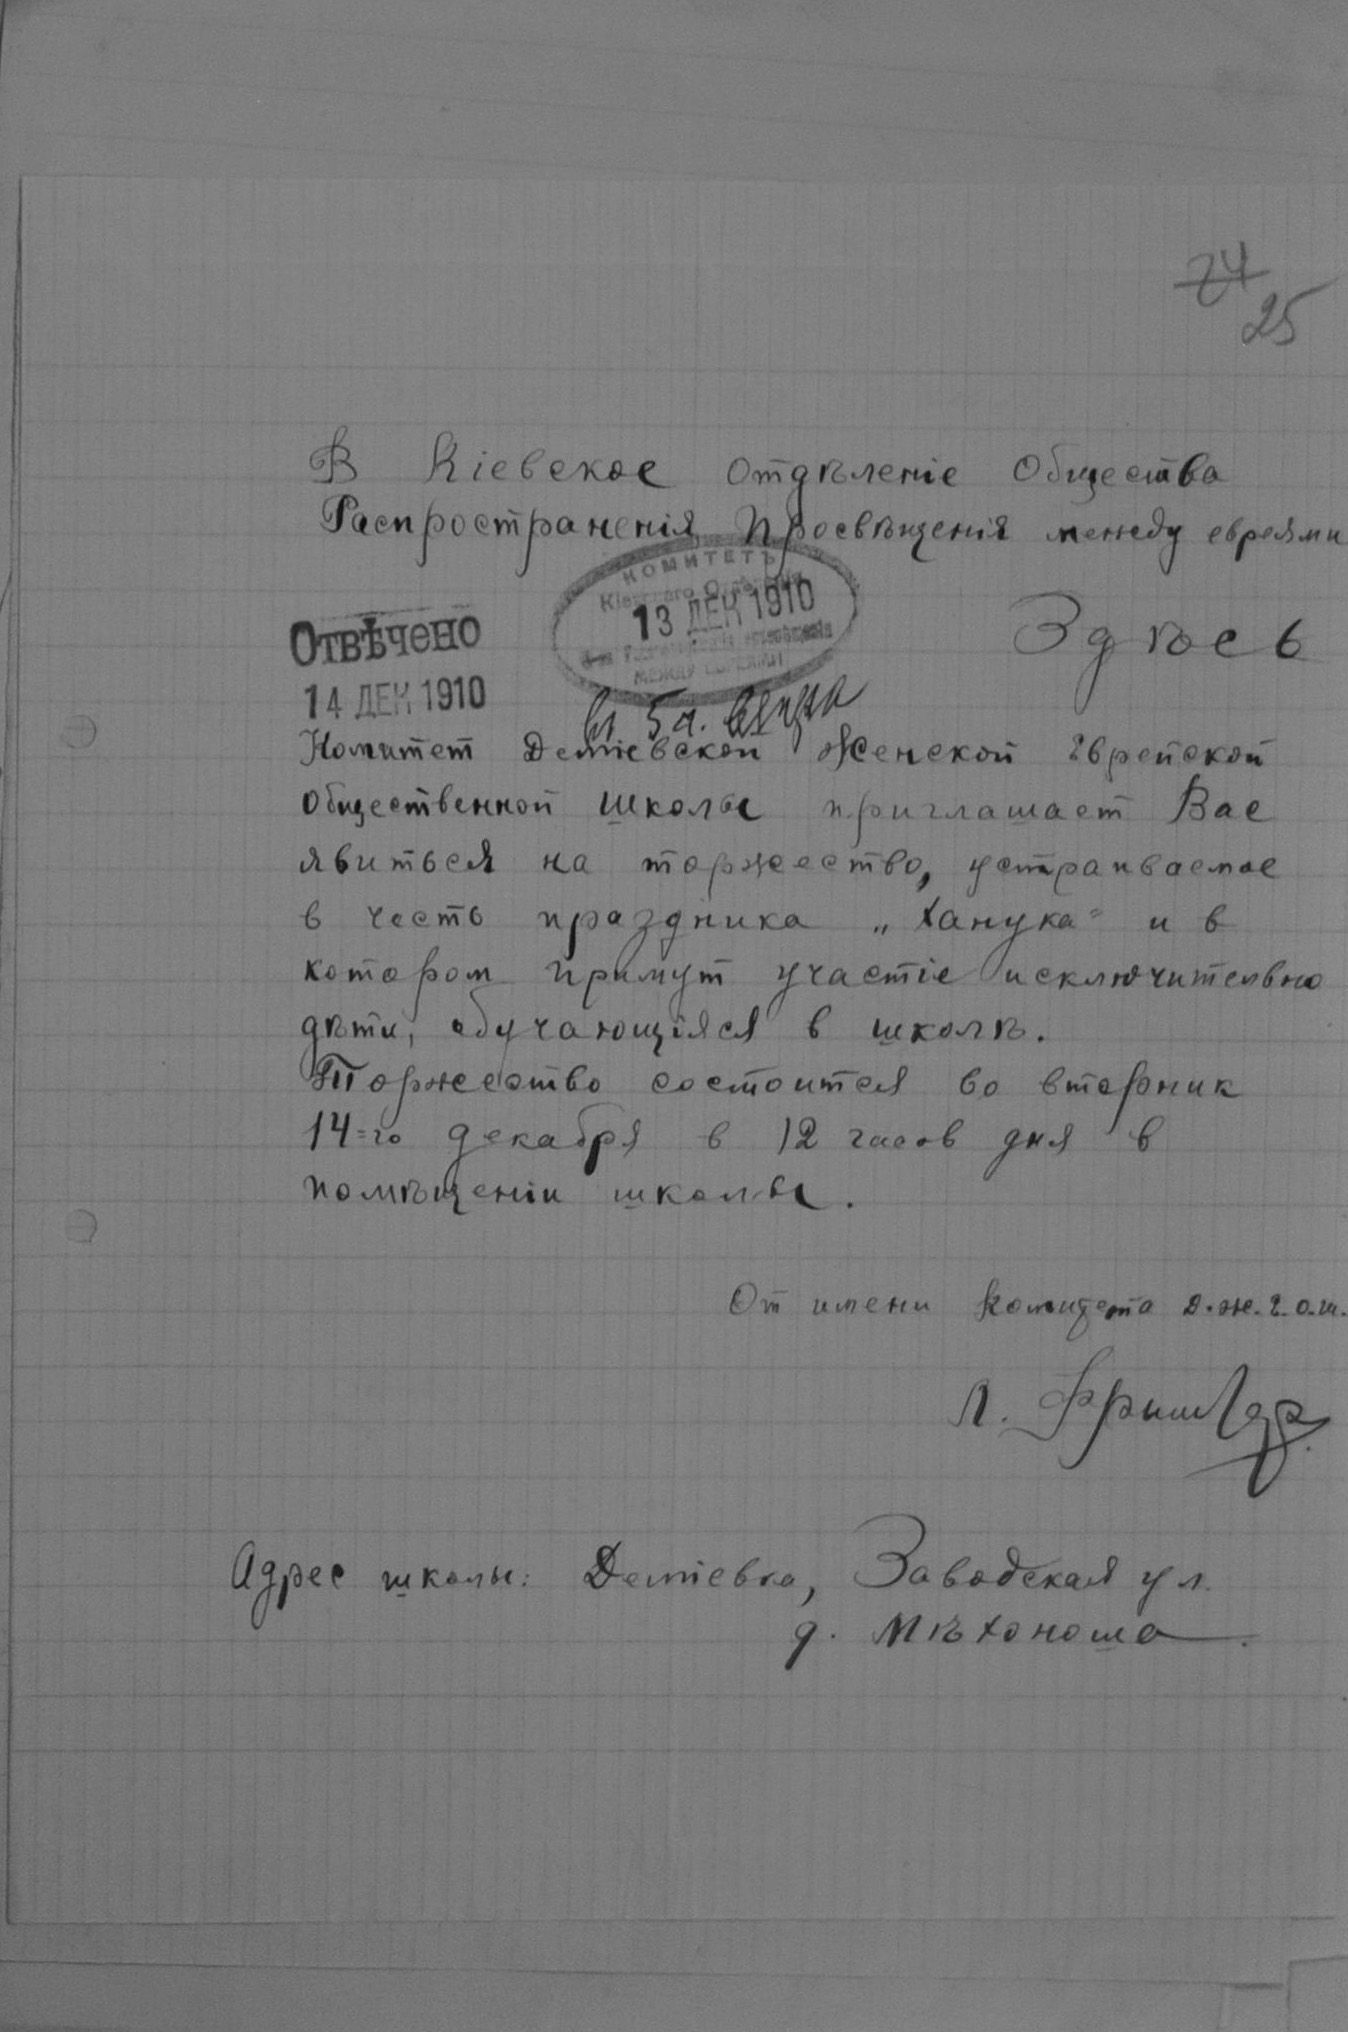 24
25
В Кіевское Отдѣленіе Общества
Распространенія Просвѣщенія между евреями
КОМИТЕТЪ
Кіевскаго Отдѣленія
13 ДЕК 1910
МЕЖДУ ЕВРЕЯМИ
Здѣсь
ОТВѢЧЕНО
14 ДЕК 1910
5 ч. вечера
Комитет Деміевской Женской Еврейской
Общественной школы приглашает Вас
явиться на торжество, устраиваемое
в честь праздника „Ханука" и в
котором примут участіе исключительно
дѣти, обучающіяся в школѣ.
Торжество состоится во вторник
14=го декабря в 12 часов дня в
помѣщеніи школы.
От имени Комитета Д.Ж.Е.О.Ш.
Л.
Адрес школы: Деміевка, Заводская ул.
д. Мѣхоноша.